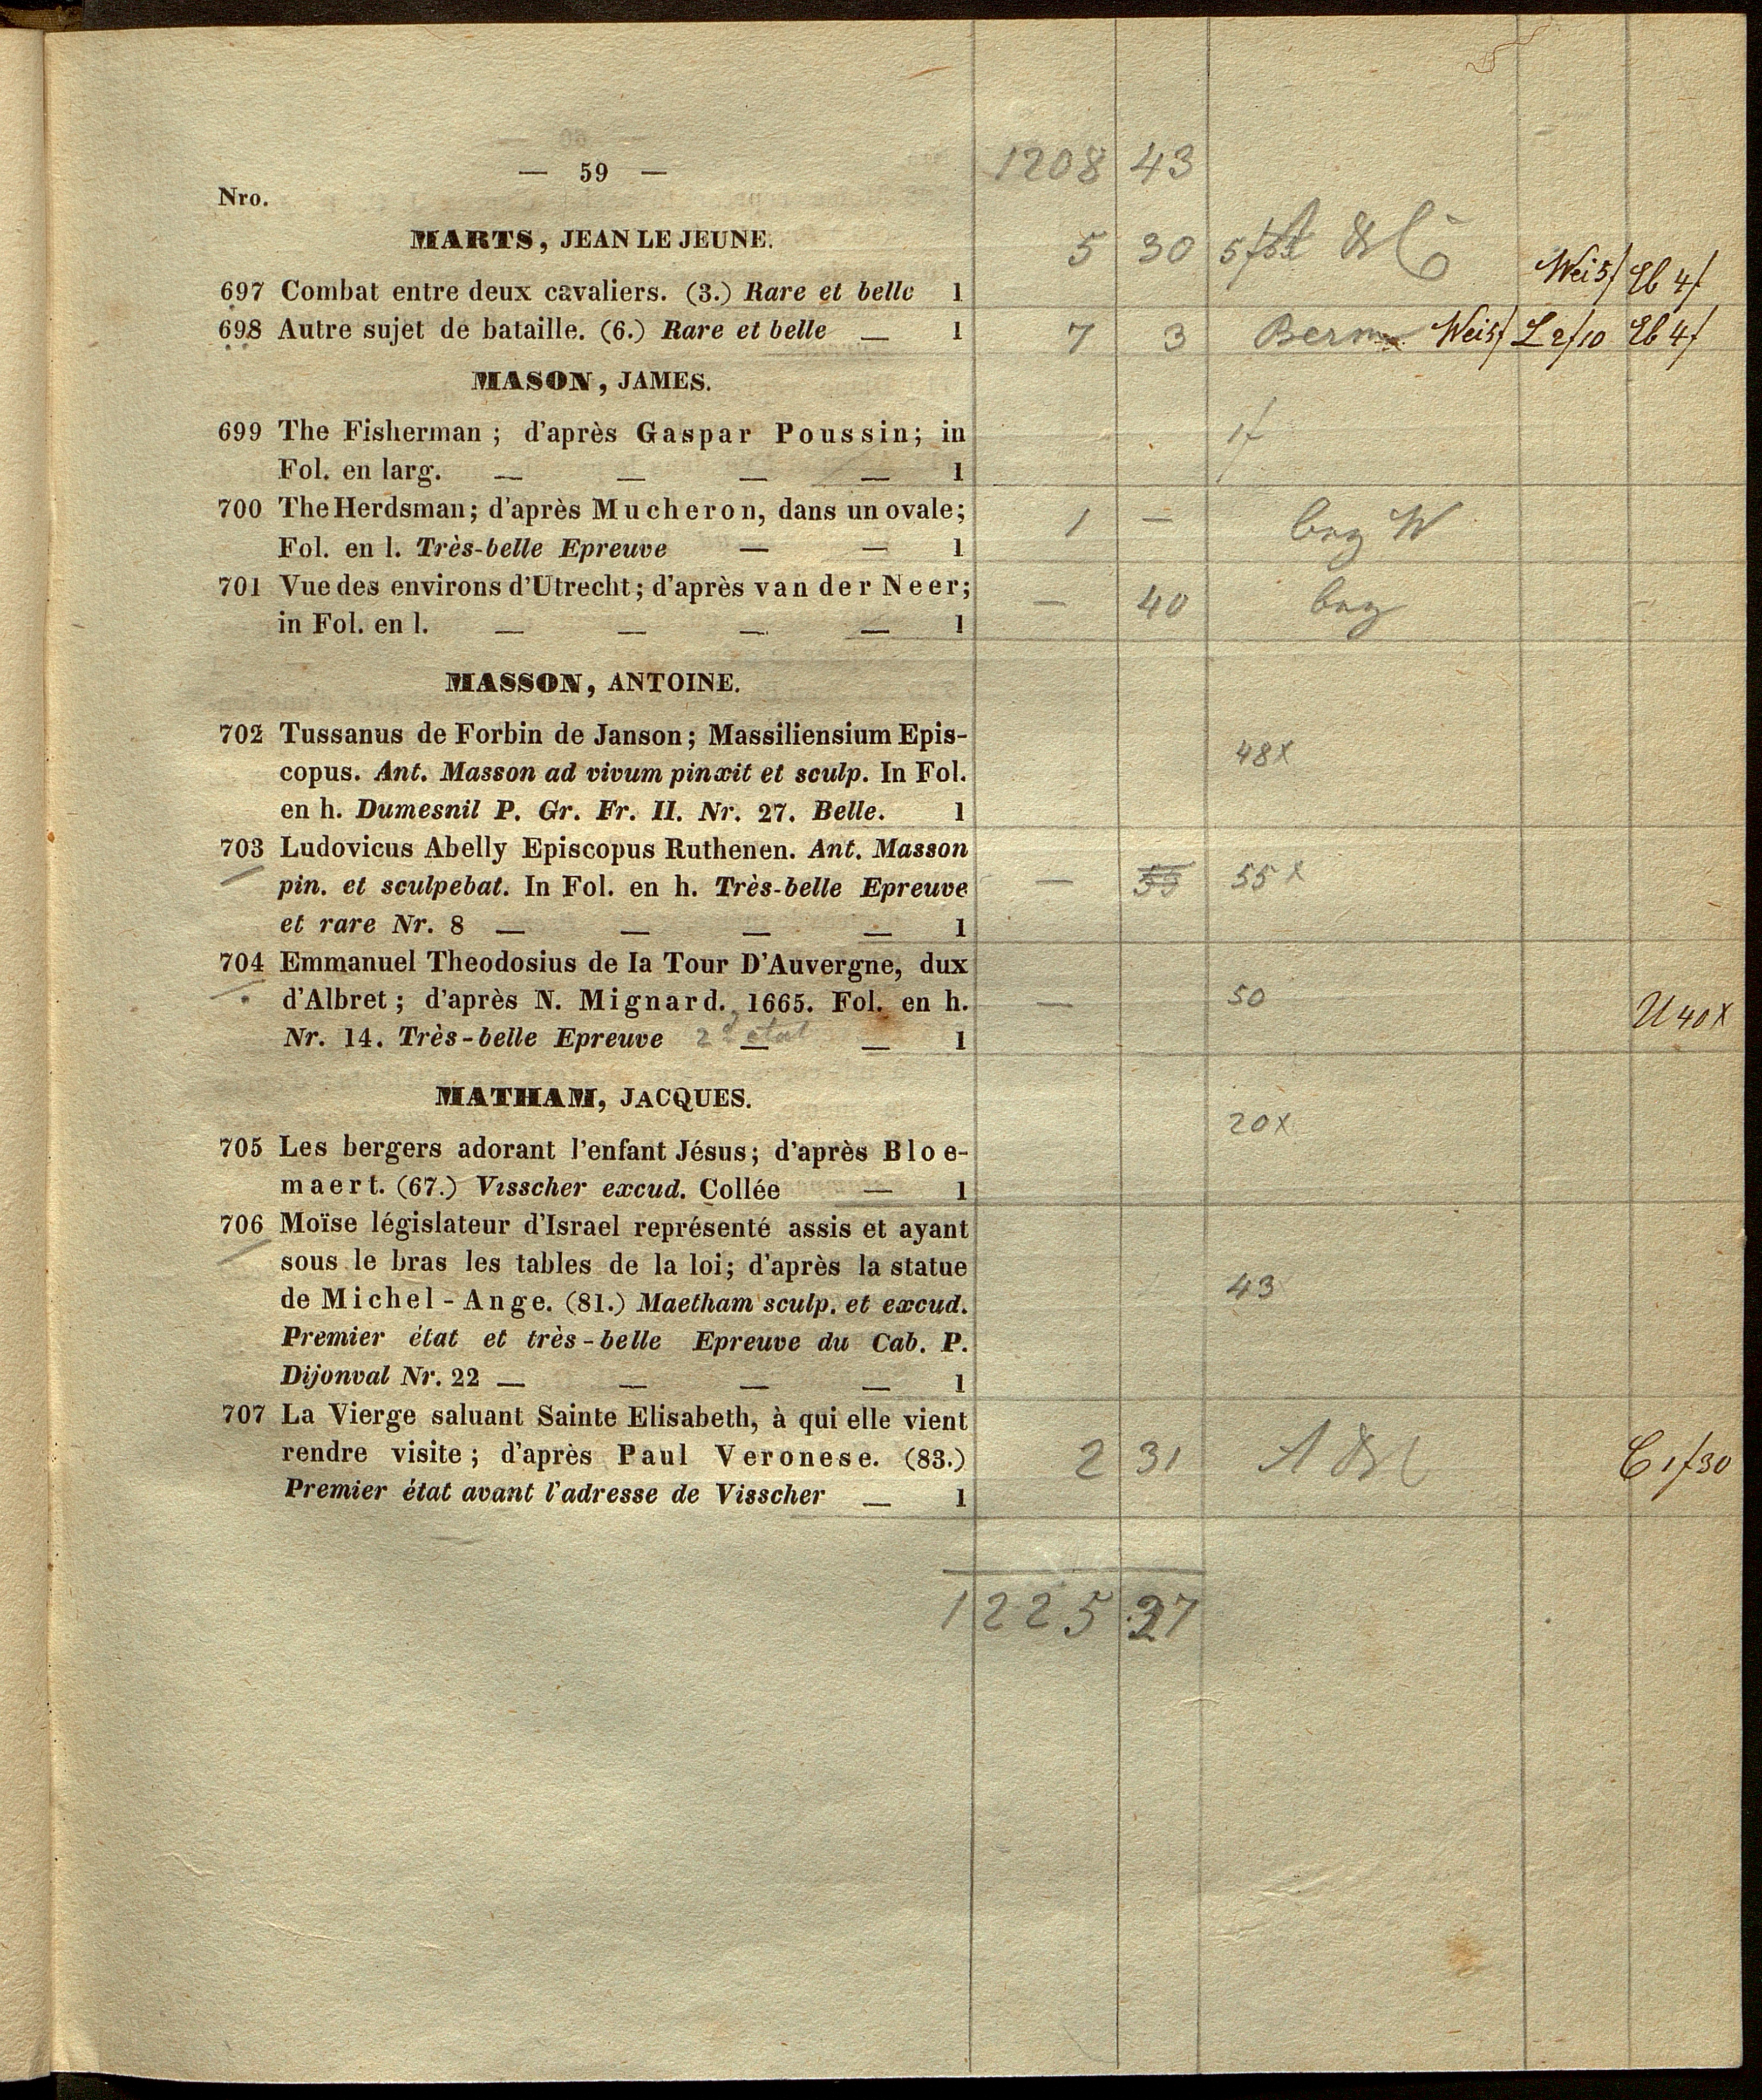 — 59 —
1208 43
Nro.
MARTS, JEAN LE JEUNE.
5 30 5f
697 Combat entre deux cavaliers. (3.) Rare et belle 1
Wei 5f Eb 4f
698 Autre sujet de bataille. (6.) Rare et belle — 1
7 3 Berm Wei 5f L 2f10 Eb 4f
MASON, JAMES.
699 The Fisherman ; d'après Gaspar Poussin; in
1f
Fol. en larg. — — — — 1
700 The Herdsman; d'après Mucheron, dans un ovale;
1 — W
Fol. en l. Très-belle Epreuve — — 1
701 Vue des environs d'Utrecht; d'après van der Neer;
— 40
in Fol. en l. — — — — 1
MASSON, ANTOINE.
702 Tussanus de Forbin de Janson; Massiliensium Epis-
48x
copus. Ant. Masson ad vivum pinxit et sculp. In Fol.
en h. Dumesnil P. Gr. Fr. II. Nr. 27. Belle. 1
703 Ludovicus Abelly Episcopus Ruthenen. Ant. Masson
pin. et sculpebat. In Fol. en h. Très-belle Epreuve
— 55 55x
et rare Nr. 8 — — — — 1
704 Emmanuel Theodosius de la Tour D'Auvergne, dux
d'Albret ; d'après N. Mignard. 1665. Fol. en h.
— 50 U 40x
Nr. 14. Très-belle Epreuve 2d état — — 1
MATHAM, JACQUES.
20x
705 Les bergers adorant l'enfant Jésus; d'après Bloe-
maert. (67.) Visscher excud. Collée — 1
706 Moïse législateur d'Israel représenté assis et ayant
sous le bras les tables de la loi; d'après la statue
43
de Michel-Ange. (81.) Maetham sculp. et excud.
Premier état et très-belle Epreuve du Cab. P.
Dijonval Nr. 22 — — — — 1
707 La Vierge saluant Sainte Elisabeth, à qui elle vient
rendre visite ; d'après Paul Veronese. (83.)
2 31 C 1f30
Premier état avant l'adresse de Visscher — 1
1225 27